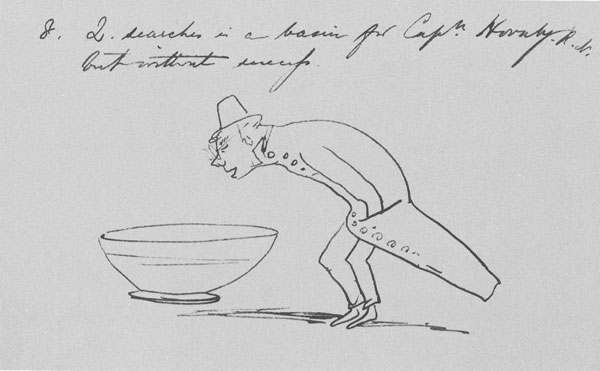 8. L. searches in a basin for Capt.n Hornby. R.N.
but without success.